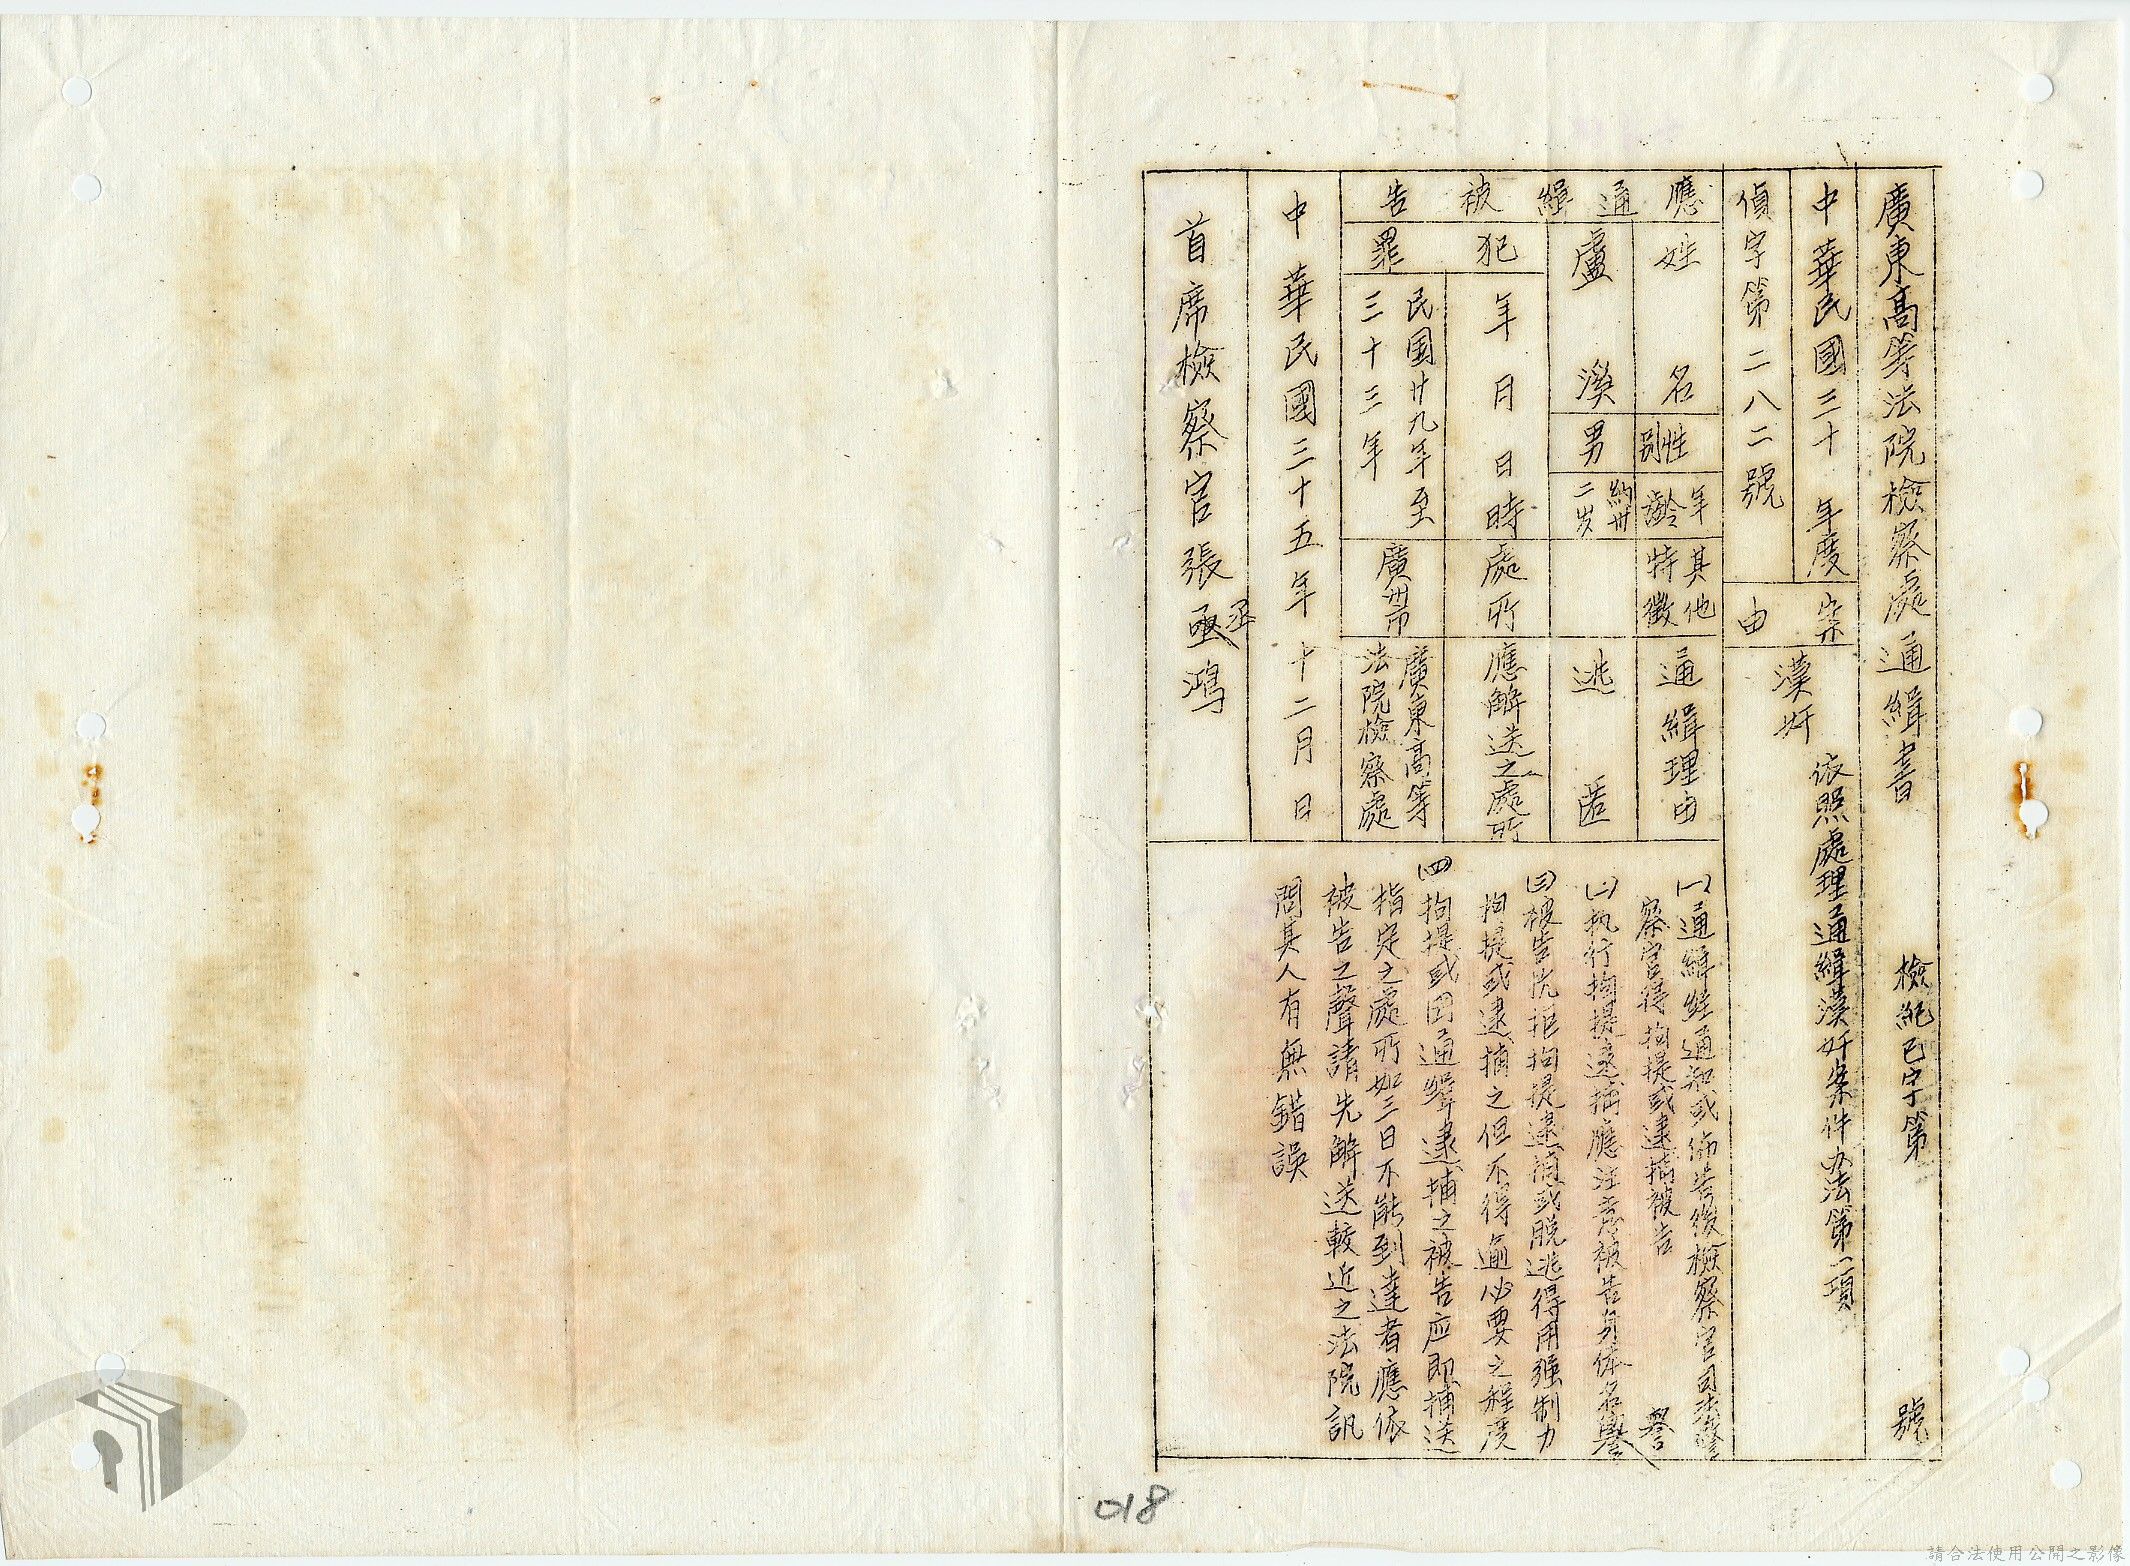 廣東高等法院檢察處通緝書
檢紀己字第 號
中華民國三十 年度
偵字第二八二號
案由
漢奸
依照處理通緝漢奸案件办法第一項
應通緝被告
姓名
性別
年齡
其他特徵
通緝理由
盧漢
男
約卅二岁
逃匿
犯罪
年月日時
處所
應解送之處所
民国廿九年至
三十三年
廣州市
廣東高等
法院檢察處
(一)通緝經通知或佈告後檢察官司法警
察官得拘提或逮捕被告
(二)执行拘提逮捕應注意被告身体名譽
譽
(三)被告抗拒拘提逮捕或脫逃得用强制力
拘提或逮捕之但不得逾必要之程度
(四)拘提或因通緝逮捕之被告应即捕送
指定之處所如三日不能到達者應依
被告之聲請先解送較近之法院訊
問其人有無錯誤
中華民國三十五年十二月 日
首席檢察官張丞鴻
018
請合法使用公開之影像